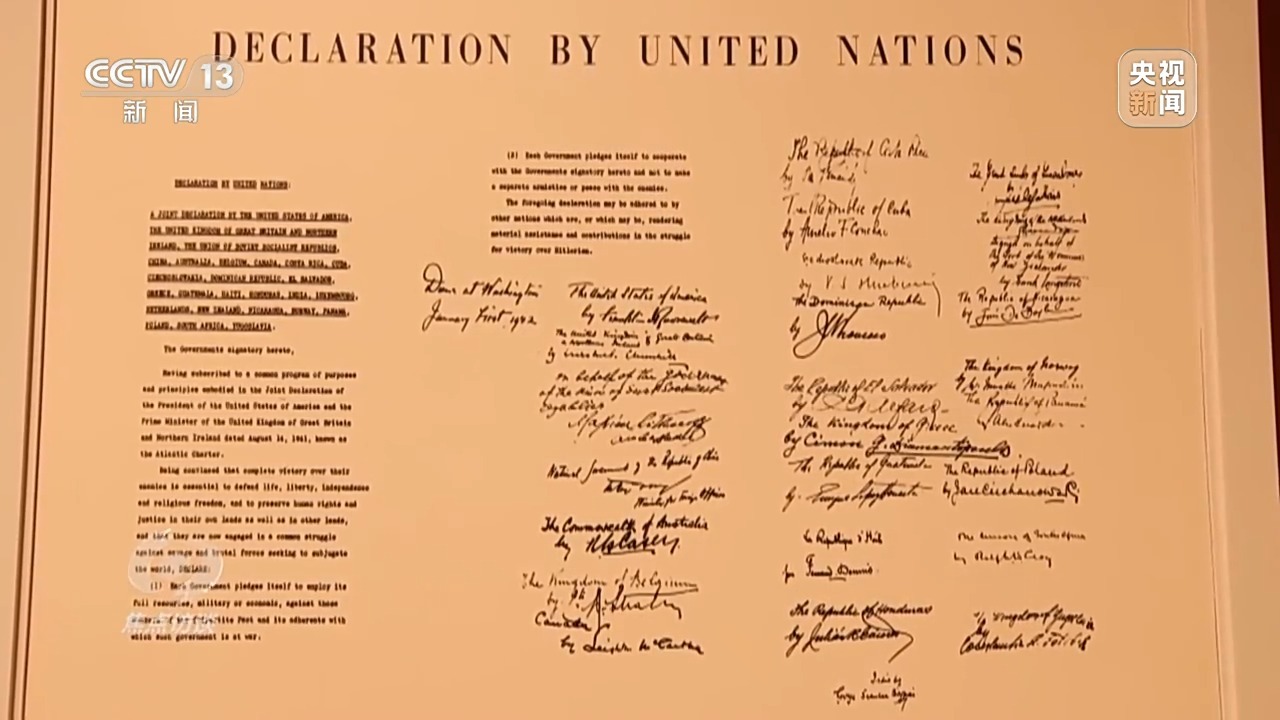 DECLARATION BY UNITED NATIONS
CCTV 13
新闻
央视
新闻
DECLARATION BY UNITED NATIONS:
A JOINT DECLARATION BY THE UNITED STATES OF AMERICA,
THE UNITED KINGDOM OF GREAT BRITAIN AND NORTHERN
IRELAND, THE UNION OF SOVIET SOCIALIST REPUBLICS,
CHINA, AUSTRALIA, BELGIUM, CANADA, COSTA RICA, CUBA,
CZECHOSLOVAKIA, DOMINICAN REPUBLIC, EL SALVADOR,
GREECE, GUATEMALA, HAITI, HONDURAS, INDIA, LUXEMBOURG,
NETHERLANDS, NEW ZEALAND, NICARAGUA, NORWAY, PANAMA,
POLAND, SOUTH AFRICA, YUGOSLAVIA.
The Governments signatory hereto,
Having subscribed to a common program of purposes
and principles embodied in the Joint Declaration of
the President of the United States of America and the
Prime Minister of the United Kingdom of Great Britain
and Northern Ireland dated August 14, 1941, known as
the Atlantic Charter.
Being convinced that complete victory over their
enemies is essential to defend life, liberty, independence
and religious freedom, and to preserve human rights and
justice in their own lands as well as in other lands,
and that they are now engaged in a common struggle
against savage and brutal forces seeking to subjugate
the world, DECLARE:
(1) Each Government pledges itself to employ its
full resources, military or economic, against those
members of the Tripartite Pact and its adherents with
which such government is at war.
焦点访谈
(2) Each Government pledges itself to cooperate
with the Governments signatory hereto and not to make
a separate armistice or peace with the enemies.
The foregoing declaration may be adhered to by
other nations which are, or which may be, rendering
material assistance and contributions in the struggle
for victory over Hitlerism.
Done at Washington
January First, 1942
The United States of America
by Franklin D Roosevelt
The United Kingdom of Great Britain
& Northern Ireland
by
on behalf of the Government
of the Union of Soviet Socialist
Republics
Maxim Litvinoff
Ambassador
National Government of the Republic of China
Minister for Foreign Affairs
The Commonwealth of Australia
by R G Casey
The Kingdom of Belgium
by
Canada
by Leighton McCarthy
The Republic of Costa Rica
by
The Republic of Cuba
by Aurelio F. Concheso
Republic
by V S
The Dominican Republic
by
The Republic of El Salvador
by
The Kingdom of Greece
by Cimon
The Republic of Guatemala
by
The Republic of Honduras
by Julián R
The Grand Duchy of Luxembourg
by
on behalf of
of New Zealand
by Frank Langstone
The Republic of Nicaragua
by
The Kingdom of Norway
by
The Republic of Panamá
by
The Republic of Poland
by Jan Ciechanowski
by
by